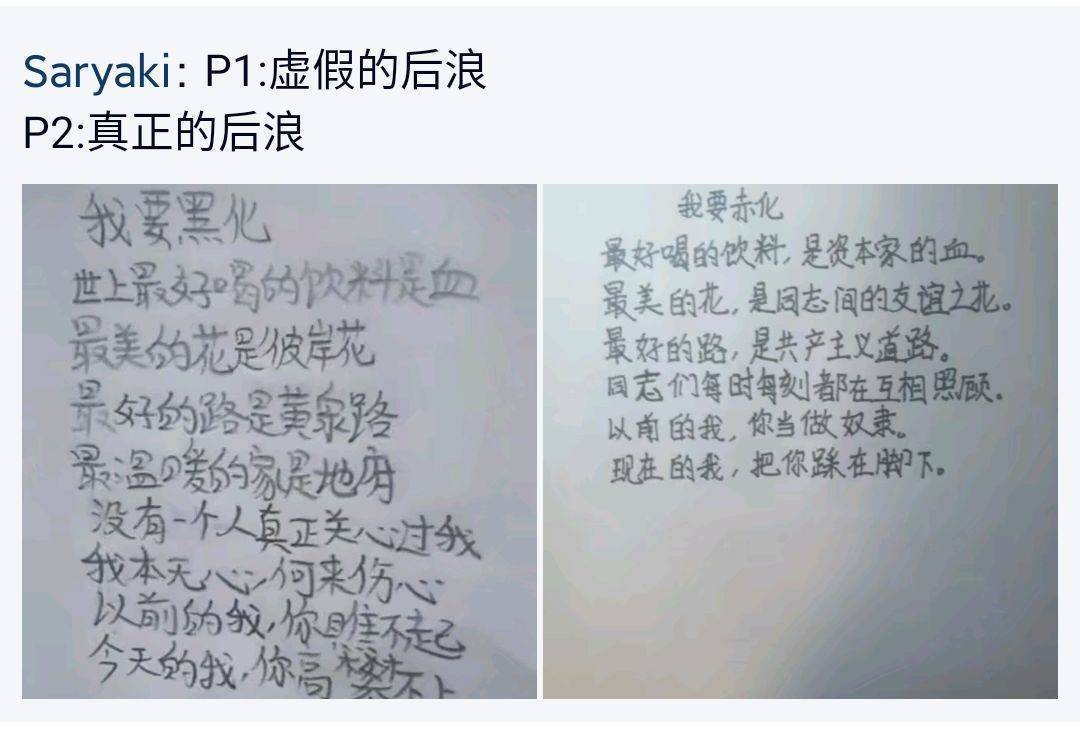 Saryaki: P1:虚假的后浪
P2:真正的后浪
我要黑化
世上最好喝的饮料是血
最美的花是彼岸花
最好的路是黄泉路
最温暖的家是地府
没有一个人真正关心过我
我本无心,何来伤心
以前的我,你瞧不起
今天的我,你高攀不上
我要赤化
最好喝的饮料,是资本家的血。
最美的花,是同志间的友谊之花。
最好的路,是共产主义道路。
同志们每时每刻都在互相照顾。
以前的我,你当做奴隶。
现在的我,把你踩在脚下。